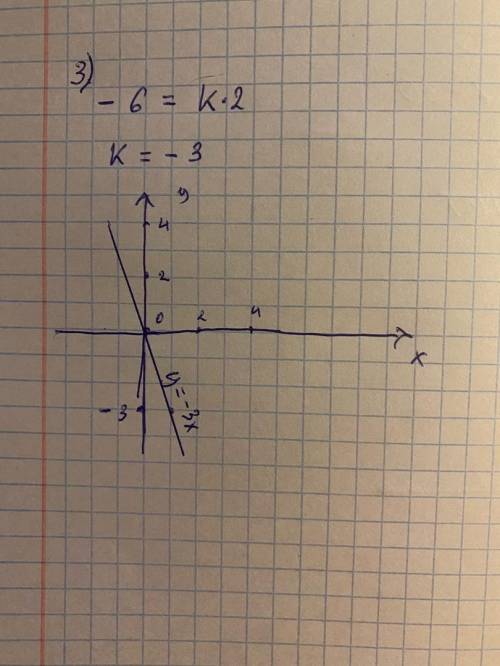 3)
- 6 = k·2
k = - 3
y
4
2
0 2 4
x
- 3
y = -3x